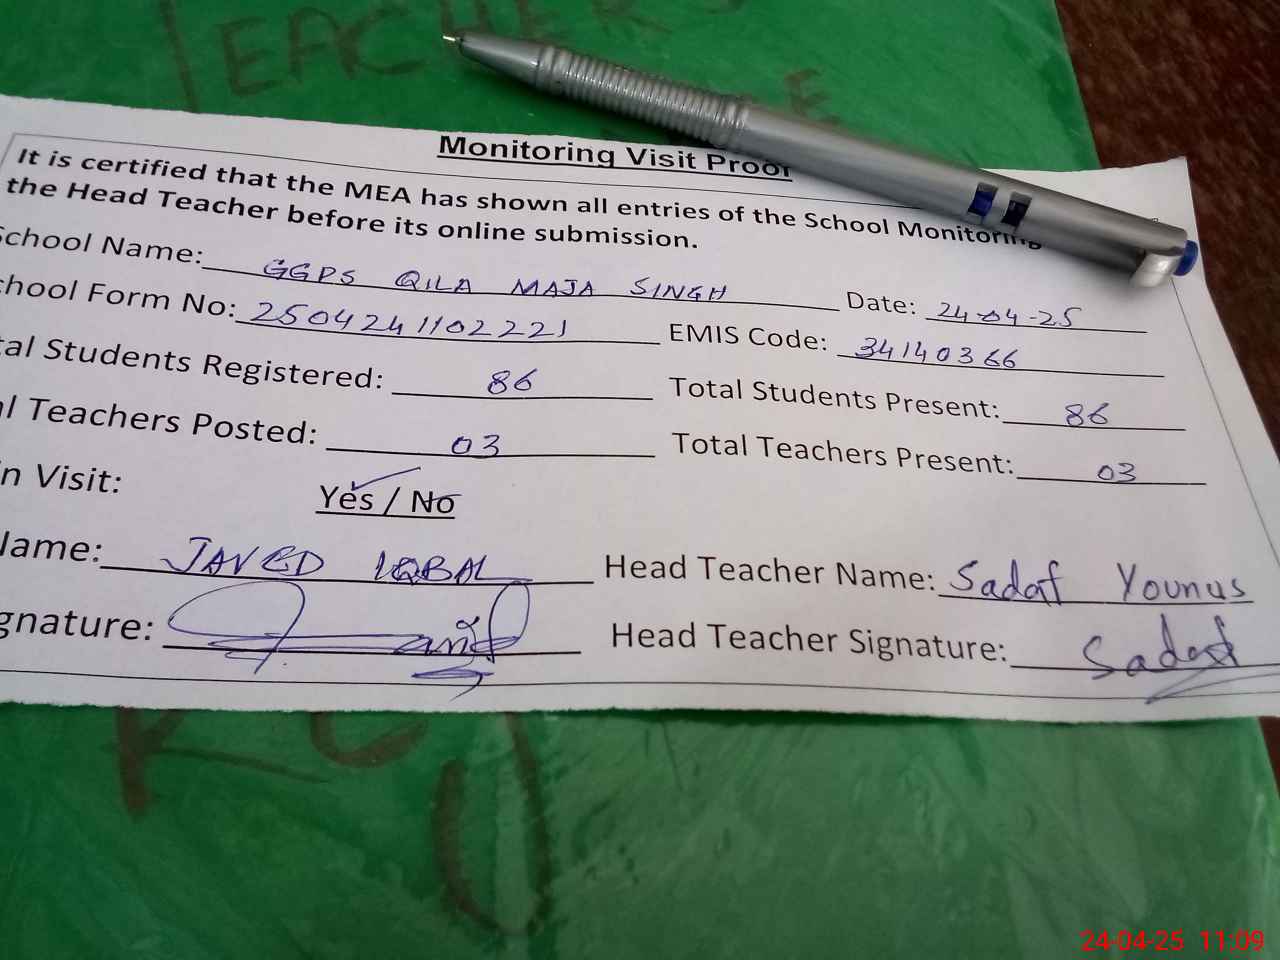 TEACHERS
Monitoring Visit Proof
It is certified that the MEA has shown all entries of the School Monitoring
the Head Teacher before its online submission.
School Name: GGPS QILA MAJA SINGH Date: 24-04-25
chool Form No: 2504241102221 EMIS Code: 34140366
tal Students Registered: 86 Total Students Present: 86
al Teachers Posted: 03 Total Teachers Present: 03
in Visit: Yes / No
Name: JAVED IQBAL Head Teacher Name: Sadaf Younus
gnature: Head Teacher Signature: Sadaf
24-04-25 11:09